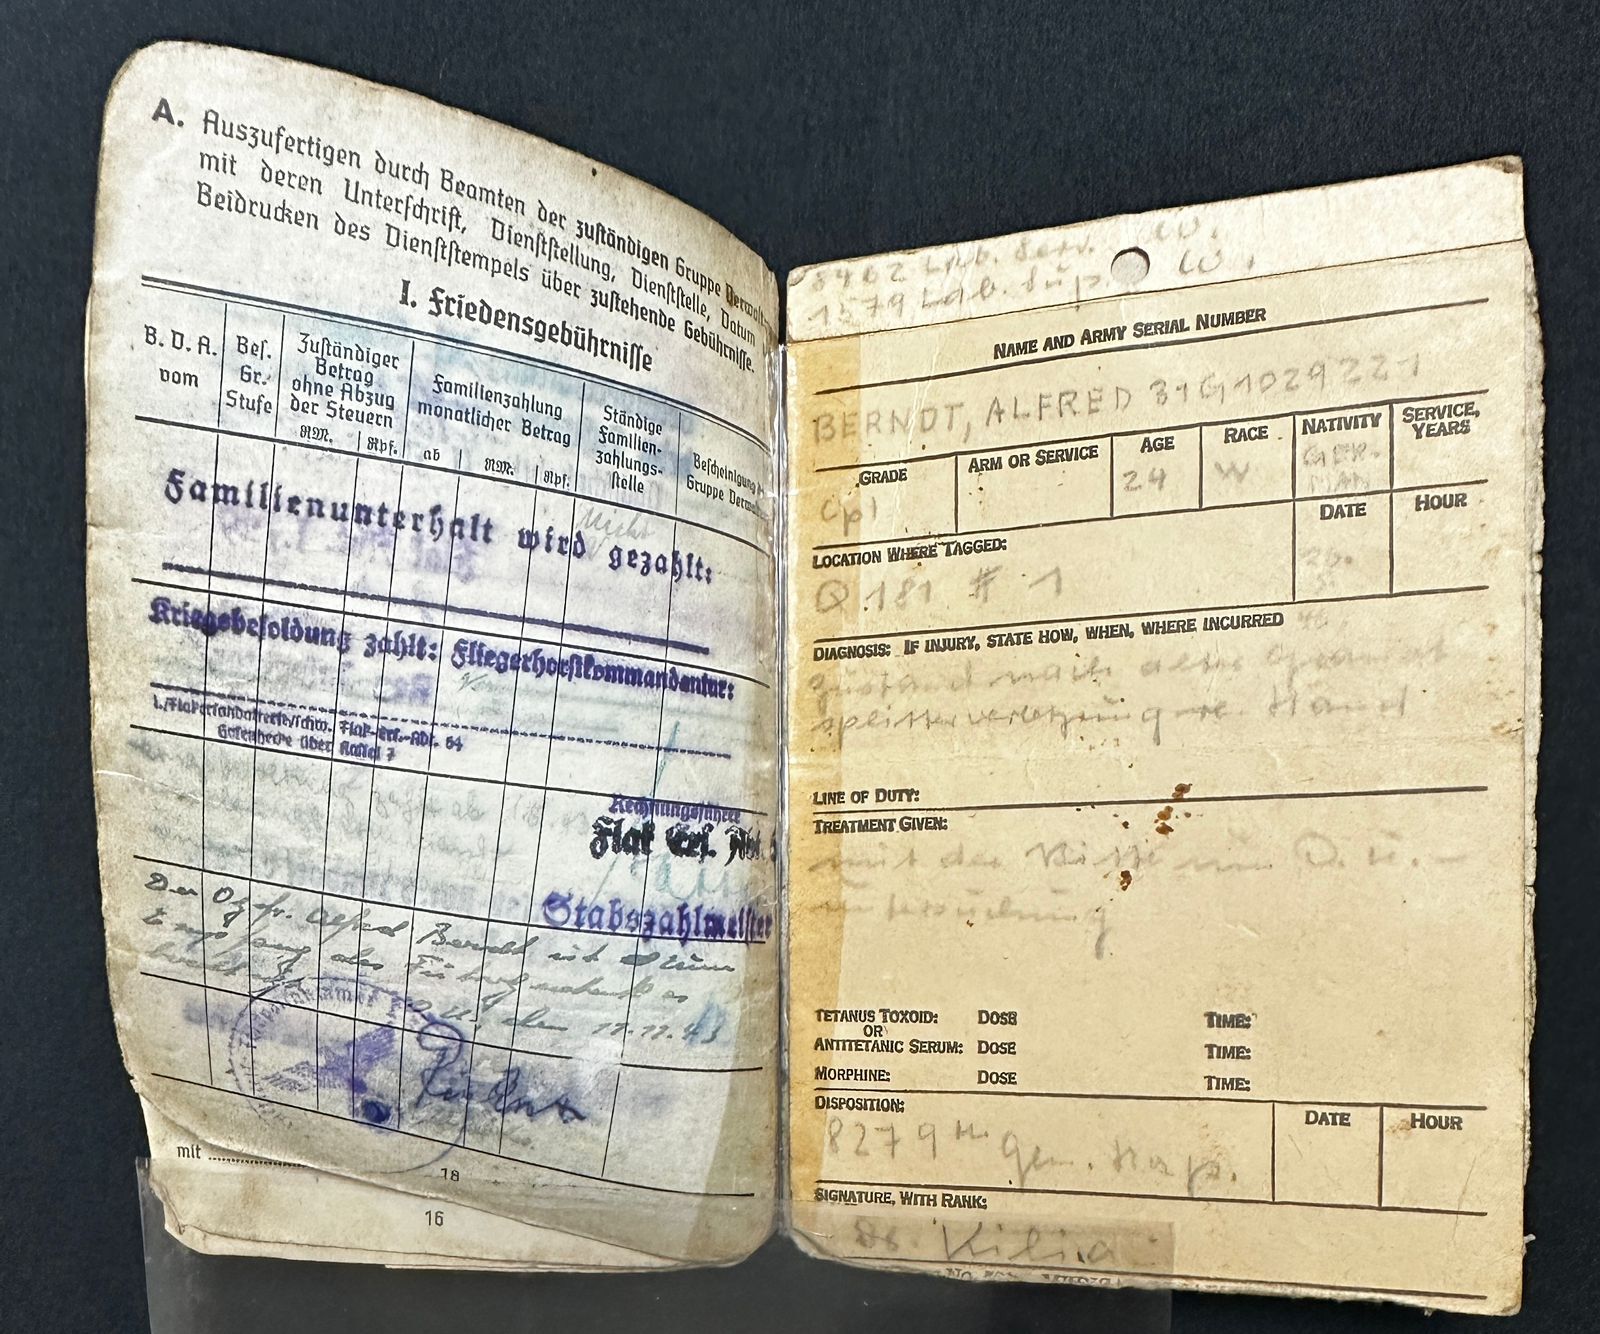 A. Auszufertigen durch Beamten der zuständigen Gruppe Verwalt-
mit deren Unterschrift, Dienststellung, Dienststelle, Datum
Beidrucken des Dienststempels über zustehende Gebührnisse.
I. Friedensgebührnisse
B. D. A. vom
Bes. Gr. Stufe
Zuständiger Betrag ohne Abzug der Steuern
RM. Rpf.
Familienzahlung monatlicher Betrag
ab RM. Rpf.
Ständige Familien-zahlungs-stelle
Bescheinigung
Gruppe Verwa
Nicht
Familienunterhalt wird gezahlt:
Kriegsbesoldung zahlt: Fliegerhorstkommandantur:
Flak-Ers.-Abt. 64
über Kassel 7
Rechnungsführer
Flak Ers. Abt.
Stabszahlmeister
Der Ogefr. Alfred Berndt ist zum
Empfang des
den 11.11.43
mit
18
16
8462 Lab. Serv. Co.
1579 Lab. Sup. Co.
NAME AND ARMY SERIAL NUMBER
BERNDT, ALFRED 31G1029221
GRADE
Cpl
ARM OR SERVICE
AGE
24
RACE
W
NATIVITY
GER-
MAN
SERVICE, YEARS
LOCATION WHERE TAGGED:
Q 181 # 1
DATE
HOUR
DIAGNOSIS: IF INJURY, STATE HOW, WHEN, WHERE INCURRED
Zustand nach alter Granat
splitterverletzung re. Hand
LINE OF DUTY:
TREATMENT GIVEN:
mit der Bitte um D. U. -
untersuchung
TETANUS TOXOID: DOSE TIME:
OR
ANTITETANIC SERUM: DOSE TIME:
MORPHINE: DOSE TIME:
DISPOSITION:
8279th Gen. Hosp.
DATE
HOUR
SIGNATURE, WITH RANK:
Dr.